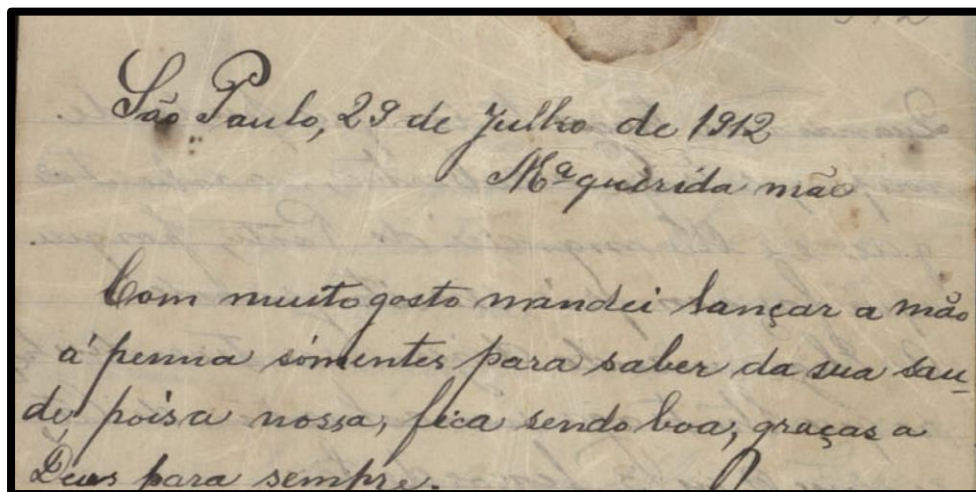 São Paulo, 29 de Julho de 1912
Mª querida mão
Com muito gosto mandei lançar a mão
á penna sómentes para saber da sua sau-
de, pois a nossa, fica sendo boa, graças a
Deus para sempre.